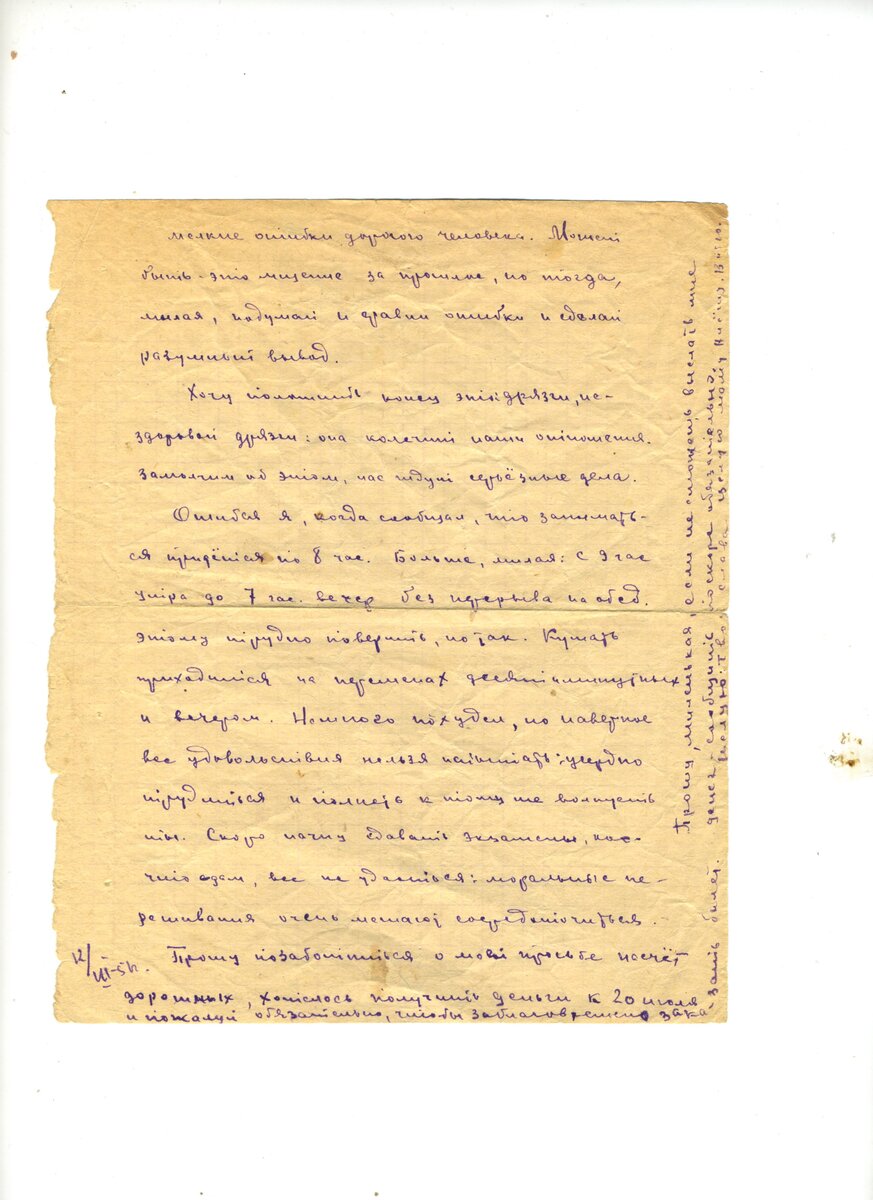 мелкие ошибки дорогого человека. Может
быть это мщение за прошлое, но тогда,
милая, подумай и сравни ошибки и сделай
разумный вывод.
Хочу положить конец этой дрязги, не-
здоровой дрязги: она калечит наши отношения.
Замолчим об этом, нас ждут серьёзные дела.
Ошибся я, когда сообщал, что занимать-
ся придётся по 8 час. Больше, милая: с 9 час
утра до 7 час. вечер без перерыва на обед.
Этому трудно поверить, но так. Кушать
приходится на переменах десятиминутных
и вечером. Немного похудел, но наверное
все удовольствия нельзя : усердно
трудиться и полнеть к тому же
Скоро начну сдавать экзамены, кое-
что сдам, все не удастся: моральные пе-
реживания очень мешают сосредоточиться.
Прошу позаботиться о моей просьбе насчёт
дорожных, хотелось получить деньги к 20 июля
и пожалуй обязательно, чтобы заблаговременно зака-
зать билет.
12/
Прошу, миленькая, если не сможешь выслать мне
денег - сообщить поскорее обязательно.
целую. Твоего слова целую мою